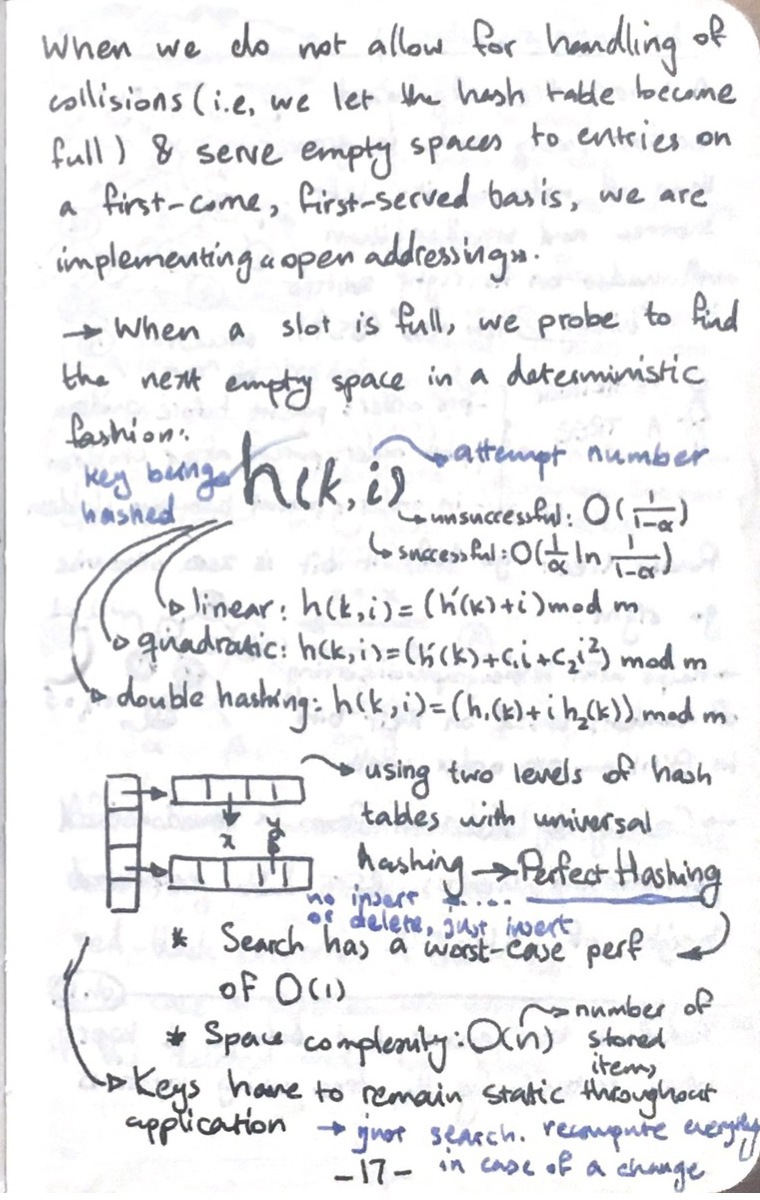 When we do not allow for handling of
collisions (i.e, we let the hash table become
full) & serve empty spaces to entries on
a first-come, first-served basis, we are
implementing «open addressing».
→ When a slot is full, we probe to find
the next empty space in a deterministic
fashion:
key being
hashed
h(k,i)
attempt number
unsuccessful: O(1/1-α)
successful: O(1/α ln 1/1-α)
linear: h(k,i) = (h'(k)+i) mod m
quadratic: h(k,i)=(h'(k)+c₁i+c₂i²) mod m
double hashing: h(k,i)=(h₁(k)+i h₂(k)) mod m
using two levels of hash
tables with universal
hashing → Perfect Hashing
x
y
no insert
or delete, just insert
* Search has a worst-case perf
of O(1)
* Space complexity: O(n)
number of
stored
items,
Keys have to remain static throughout
application → just search. recompute everything
in case of a change
-17-